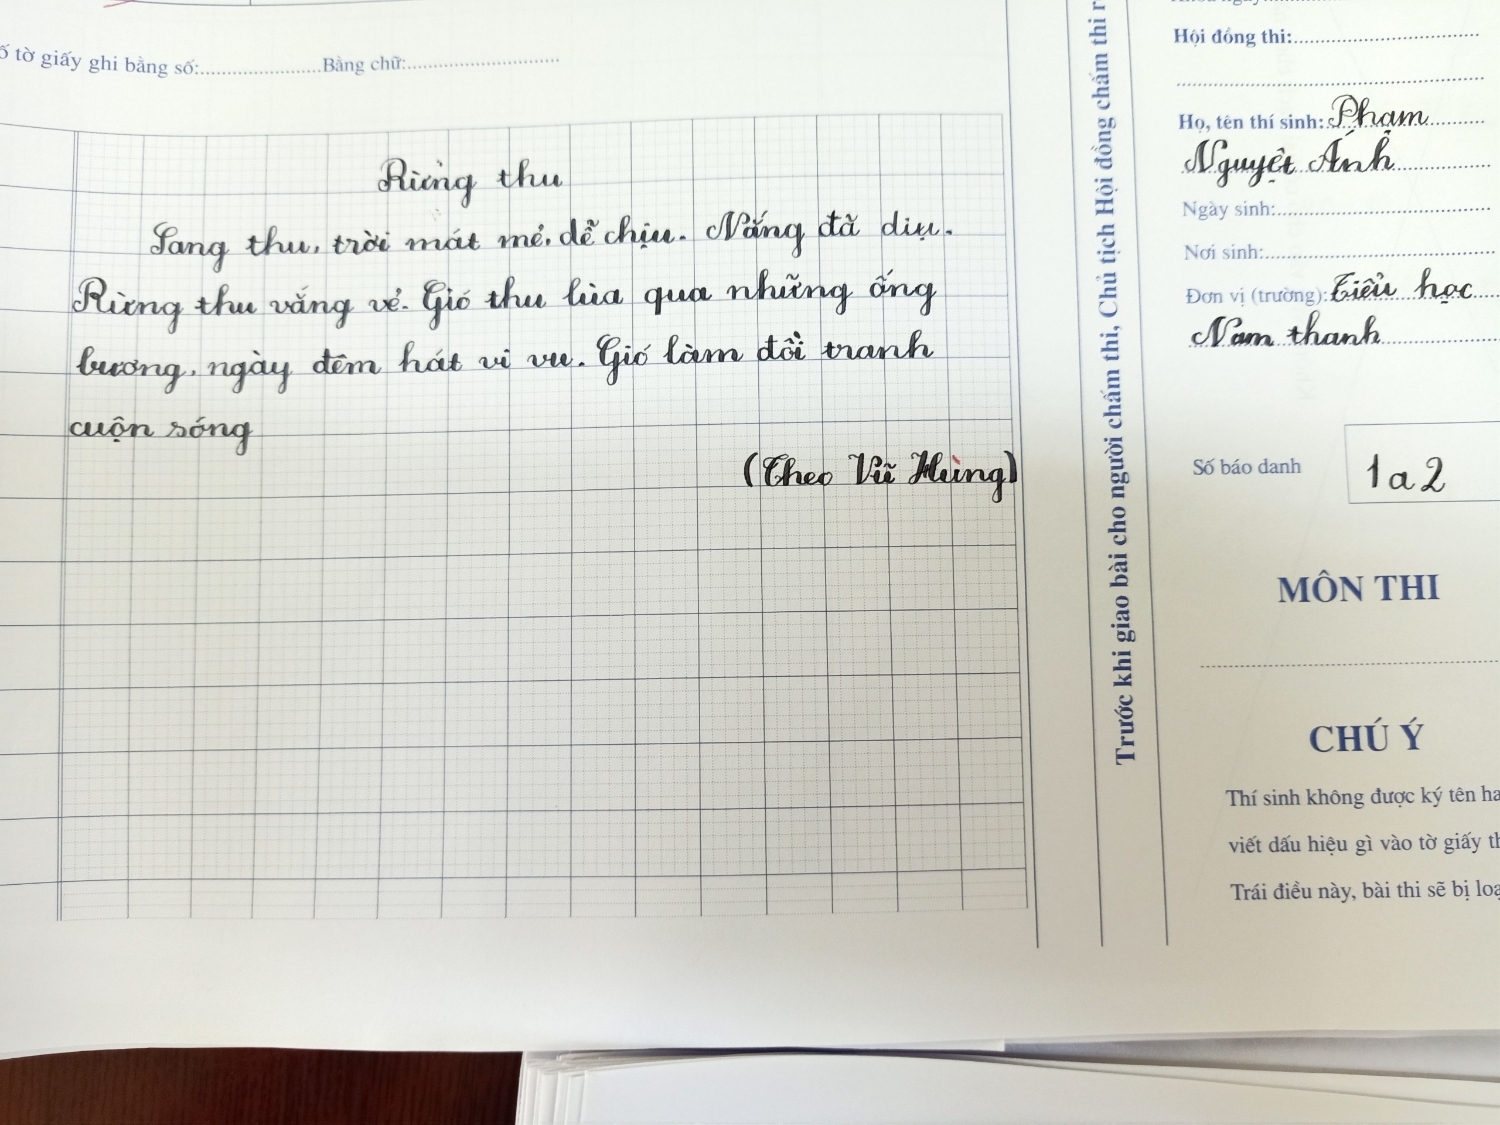 ố tờ giấy ghi bằng số:....................Bằng chữ:..........................
Rừng thu
Sang thu, trời mát mẻ, dễ chịu. Nắng đã dịu.
Rừng thu vắng vẻ. Gió thu lùa qua những ống
bương, ngày đêm hát vi vu. Gió làm đồi tranh
cuộn sóng
(Theo Vũ Hùng)
Trước khi giao bài cho người chấm thi, Chủ tịch Hội đồng chấm thi r
Hội đồng thi:
Họ, tên thí sinh: Phạm
Nguyệt Ánh
Ngày sinh:
Nơi sinh:
Đơn vị (trường): Tiểu học
Nam thanh
Số báo danh
1a2
MÔN THI
CHÚ Ý
Thí sinh không được ký tên ha
viết dấu hiệu gì vào tờ giấy th
Trái điều này, bài thi sẽ bị loạ